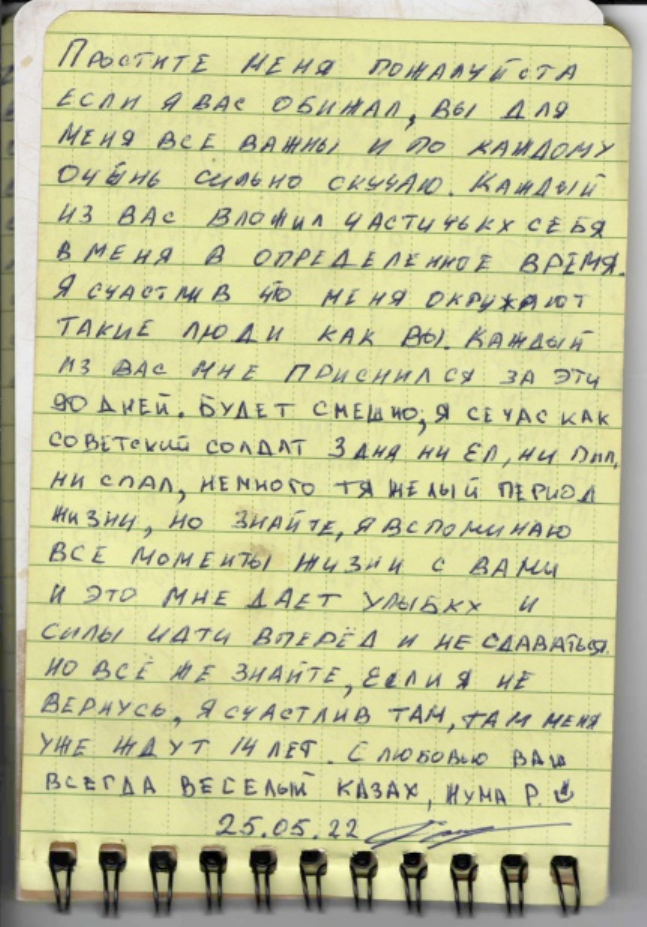 Простите меня пожалуйста
если я вас обижал, вы для
меня все важны и по каждому
очень сильно скучаю. Каждый
из вас вложил частичькх себя
в меня в определенное время.
Я счастлив что меня окружают
такие люди как вы. Каждый
из вас мне приснился за эти
90 дней. Будет смешно, я сечас как
советский солдат 3 дня ни ел, ни пил,
ни спал, немного тяжелый период
жизни, но знайте, я вспоминаю
все моменты жизни с вами
и это мне дает улыбкх и
силы идти вперёд и не сдаваться.
Но всё же знайте, если я не
вернусь, я счастлив там, там меня
уже ждут 14 лет. С любовью ваш
всегда веселый казах, Жума Р.
25.05.22